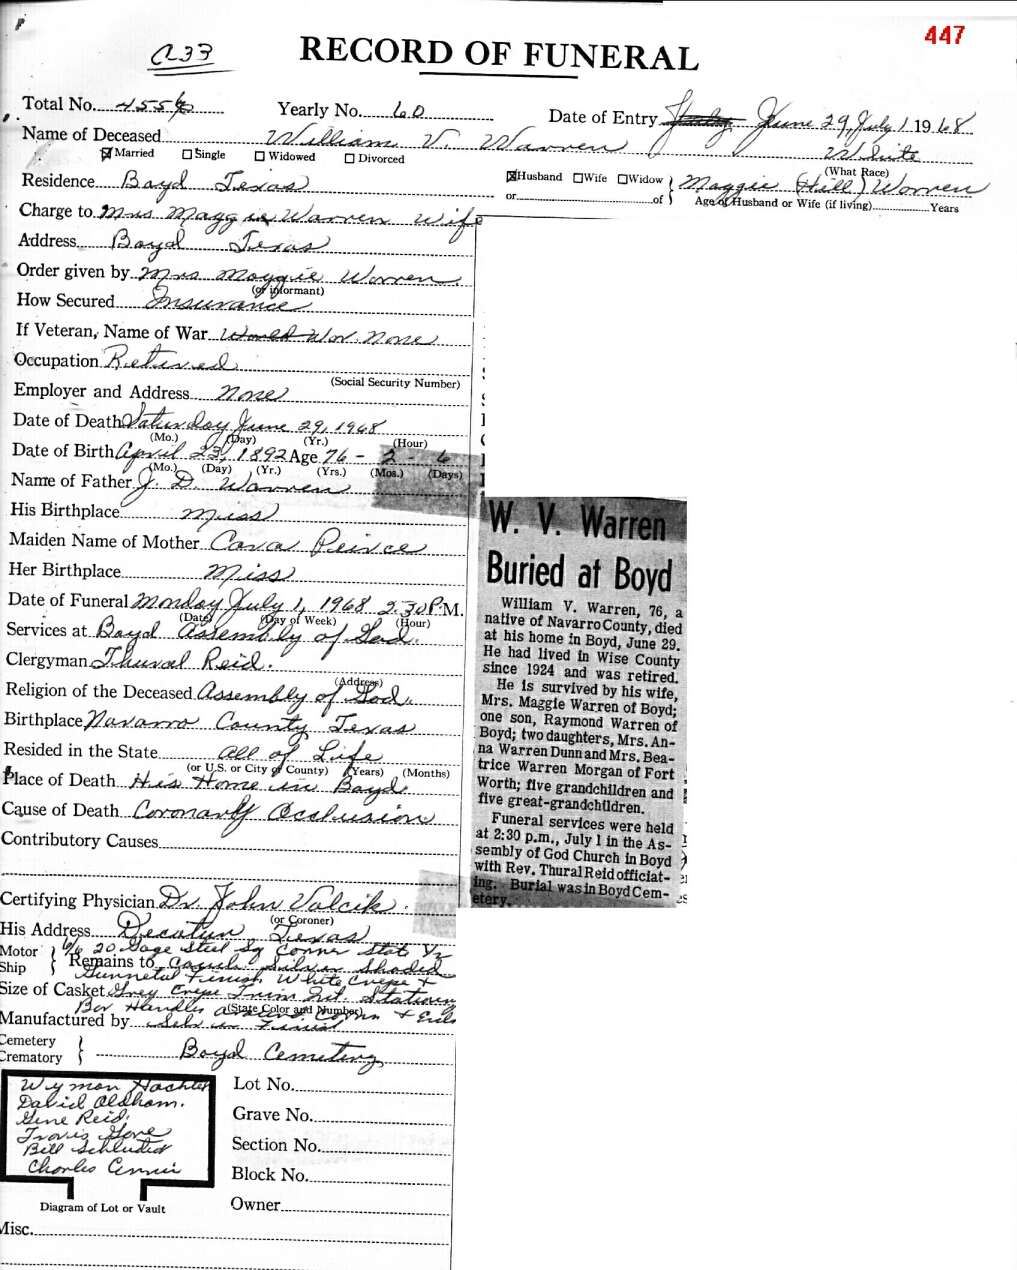 447
C233
RECORD OF FUNERAL
Total No. Yearly No. 60 Date of Entry June 29, July 1 1968
Name of Deceased William V. Warren White
Married Single Widowed Divorced (What Race)
Residence Boyd Texas Husband Wife Widow Maggie (Hill) Warren
or of Age of Husband or Wife (if living) Years
Charge to Mrs Maggie Warren Wife
Address Boyd Texas
Order given by Mrs Maggie Warren
(or informant)
How Secured Insurance
If Veteran, Name of War World War None
Occupation Retired
(Social Security Number)
Employer and Address None
Date of Death Saturday June 29, 1968
(Mo.) (Day) (Yr.) (Hour)
Date of Birth April 23, 1892 Age 76 - 2 - 6
(Mo.) (Day) (Yr.) (Yrs.) (Mos.) (Days)
Name of Father J. D. Warren
His Birthplace Miss
Maiden Name of Mother Cava Peirce
Her Birthplace Miss
Date of Funeral Monday July 1, 1968 2:30 P.M.
(Date) (Day of Week) (Hour)
Services at Boyd Assembly of God.
Clergyman Thural Reid.
(Address)
Religion of the Deceased Assembly of God.
Birthplace Navarro County Texas
Resided in the State All of Life
(or U.S. or City of County) (Years) (Months)
Place of Death His Home in Boyd.
Cause of Death Coronary Occlusion
Contributory Causes
Certifying Physician Dr. John Volcik.
(or Coroner)
His Address Decatur Texas
Motor Ship 6/6 20 Gage Steel Sq Corner State
Remains to Silver Shaded
Gunmetal Finish White Crepe &
Size of Casket Grey Crepe Trim Int. Stationary
Bar Handles Corners & Ends
(State Color and Number)
Manufactured by Silver Finish
Cemetery Crematory Boyd Cemetery
Wymon
David Oldham.
Gene Reid.
Travis Gore
Bill
Charles
Diagram of Lot or Vault
Lot No.
Grave No.
Section No.
Block No.
Owner
Misc.
W. V. Warren
Buried at Boyd
William V. Warren, 76, a
native of Navarro County, died
at his home in Boyd, June 29.
He had lived in Wise County
since 1924 and was retired.
He is survived by his wife,
Mrs. Maggie Warren of Boyd;
one son, Raymond Warren of
Boyd; two daughters, Mrs. An-
na Warren Dunn and Mrs. Bea-
trice Warren Morgan of Fort
Worth; five grandchildren and
five great-grandchildren.
Funeral services were held
at 2:30 p.m., July 1 in the As-
sembly of God Church in Boyd
with Rev. Thural Reid officiat-
ing. Burial was in Boyd Cem-
etery.